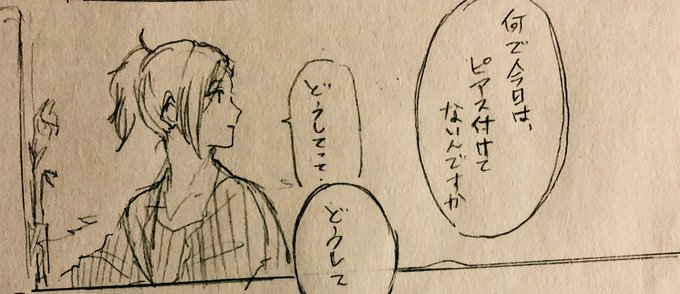 何で今日は、
ピアス付けて
ないんですか
どうしてって・
どうして